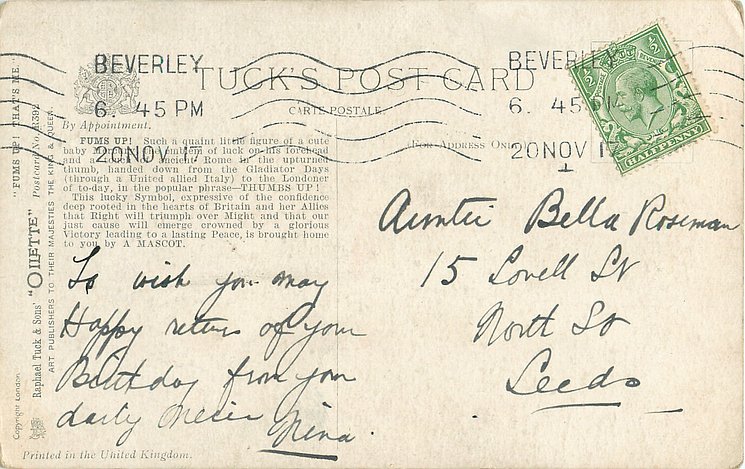 BEVERLEY
6. 45 PM
20 NOV 17
BEVERLEY
6. 45 PM
20 NOV 17
TUCK'S POST CARD
CARTE POSTALE
By Appointment.
(For Address Only)
½ ½
HALFPENNY
FUMS UP! Such a quaint little figure of a cute
baby with the emblem of luck on his forehead
and a touch of ancient Rome in the upturned
thumb, handed down from the Gladiator Days
(through a United allied Italy) to the Londoner
of to-day, in the popular phrase—THUMBS UP!
This lucky Symbol, expressive of the confidence
deep rooted in the hearts of Britain and her Allies
that Right will triumph over Might and that our
just cause will emerge crowned by a glorious
Victory leading to a lasting Peace, is brought home
to you by A MASCOT.
"FUMS UP! THAT'S ME."
Postcard No.
Raphael Tuck & Sons' "OILETTE"
ART PUBLISHERS TO THEIR MAJESTIES THE KING & QUEEN
Copyright London
To wish you may
Happy returns of your
Birthday from your
Nina.
Auntie Bella Roseman
15 Lovell St
North St
Leeds
Printed in the United Kingdom.